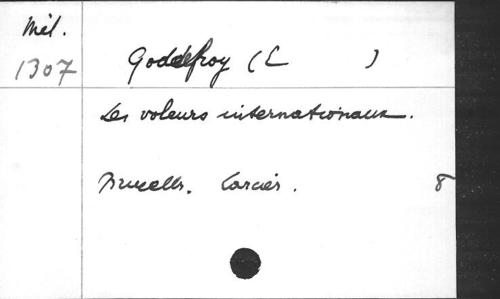 Mél.
1307
Goddefroy (L )
Les voleurs internationaux.
Bruxelles. Larcier. 8